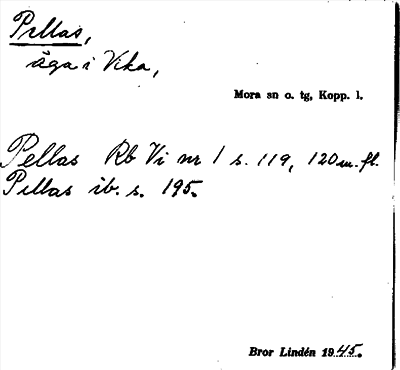 Pellas,
äga i Vika,
Mora sn o. tg, Kopp. l.
Pellas Rb Vi nr 1 s. 119, 120 m. fl.
Pellas ib. s. 195.
Bror Lindén 1945.